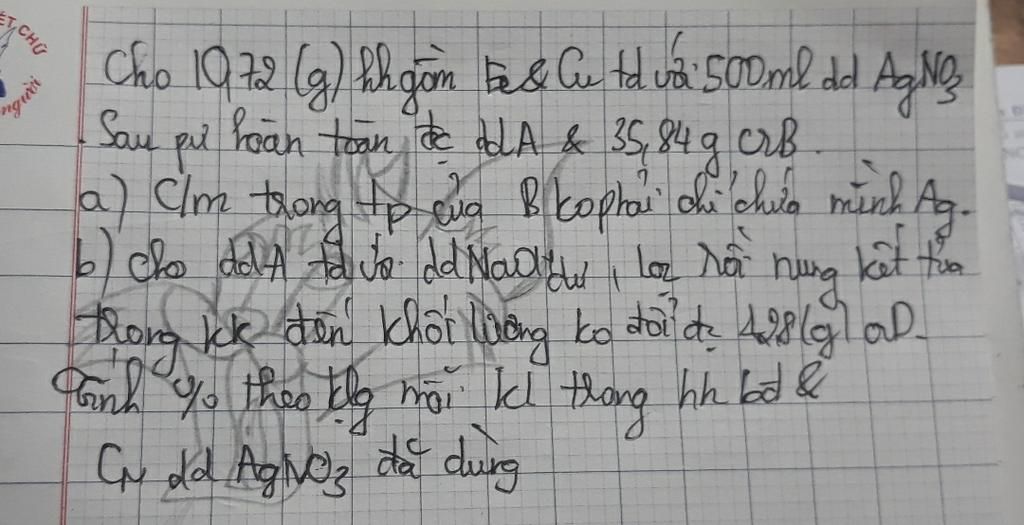 ẾT CHỮ
người
Cho 10,72 (g) hh gồm Fe & Cu td với 500ml dd AgNO3
Sau pư hoàn toàn đc ddA & 35,84g CRB.
a) C/m trong tp của B ko phải chỉ chứa mình Ag.
b) cho ddA td với ddNaOH dư, lọc rồi nung kết tủa
trong kk đến khối lượng ko đổi đc 12,8(g) CRD.
Tính % theo klg mỗi kl trong hh bđ &
CM dd AgNO3 đã dùng